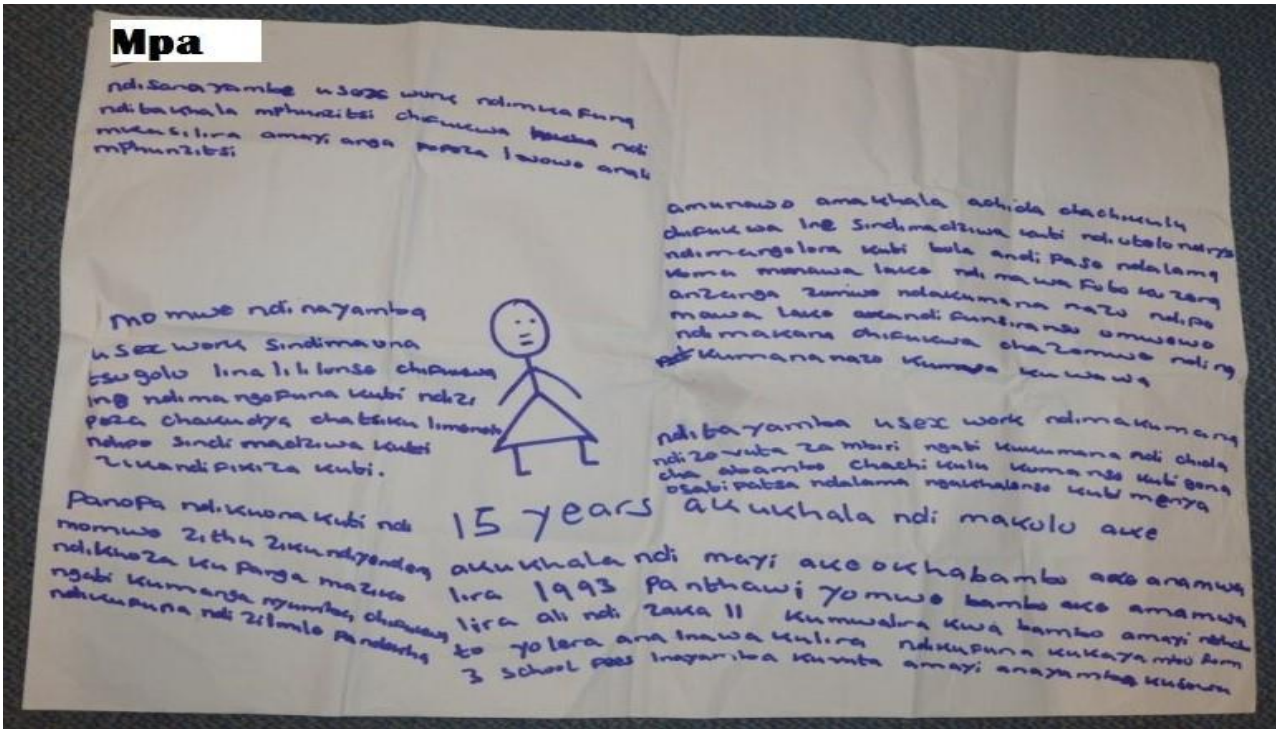 Mpa
ndisanayambe usexx work ndimkafuna
ndibakhala mphunzitsi chifukwa ndi
mkasilira amayi anga popeza iwowo anali
mphunzitsi
amunawo amakhala achida chachikulu
chifukwa ine sindimadziwa kubi
ndimangolora kubi bola andi Pase ndalama
koma monawa lake ndi mawafubo ku zang
anzanga zomwe ndakumana nazo ndipo
mawa lake akandi funsiranso omwewo
ndimakana chifukwa chazomwe nding
kumananazo kumava kuwawa
momwe ndinayamba
usex work sindimaona
tsogolo lina lililonse chifukwa
ine ndimangofuna kubi ndizi
peza chakudya chatsiku limeneli
ndipo sindimadziwa kubi
zikandipikiza kubi.
ndibayamba usex work ndimakumana
ndi zovuta za mbiri ngabi kukumana ndi chida
cha abambo chachikulu kumanso kubigona
osabipatsa ndalama ngakhalenso kubi menya
Panopa ndikuona kubi ndi
momwe zithu zikundiyendera
ndikhoza ku Panga maziko
ngabi kumanga nyumba, chifukwa
ndikufuna ndi zilimilo pandekha
15 years akukhala ndi makolo ake
akukhala ndi mayi ake okha bambo ake anamwa
lira 1993 Panthawi yomwe bambo ake amamwa
lira ali ndi zaka 11 kumwalira kwa bambo amayi ndekh
to yolera ana inawa kulira ndikufuna kukayamba form
3 school fees inayamba kuvuta amayi anayamba kusowa